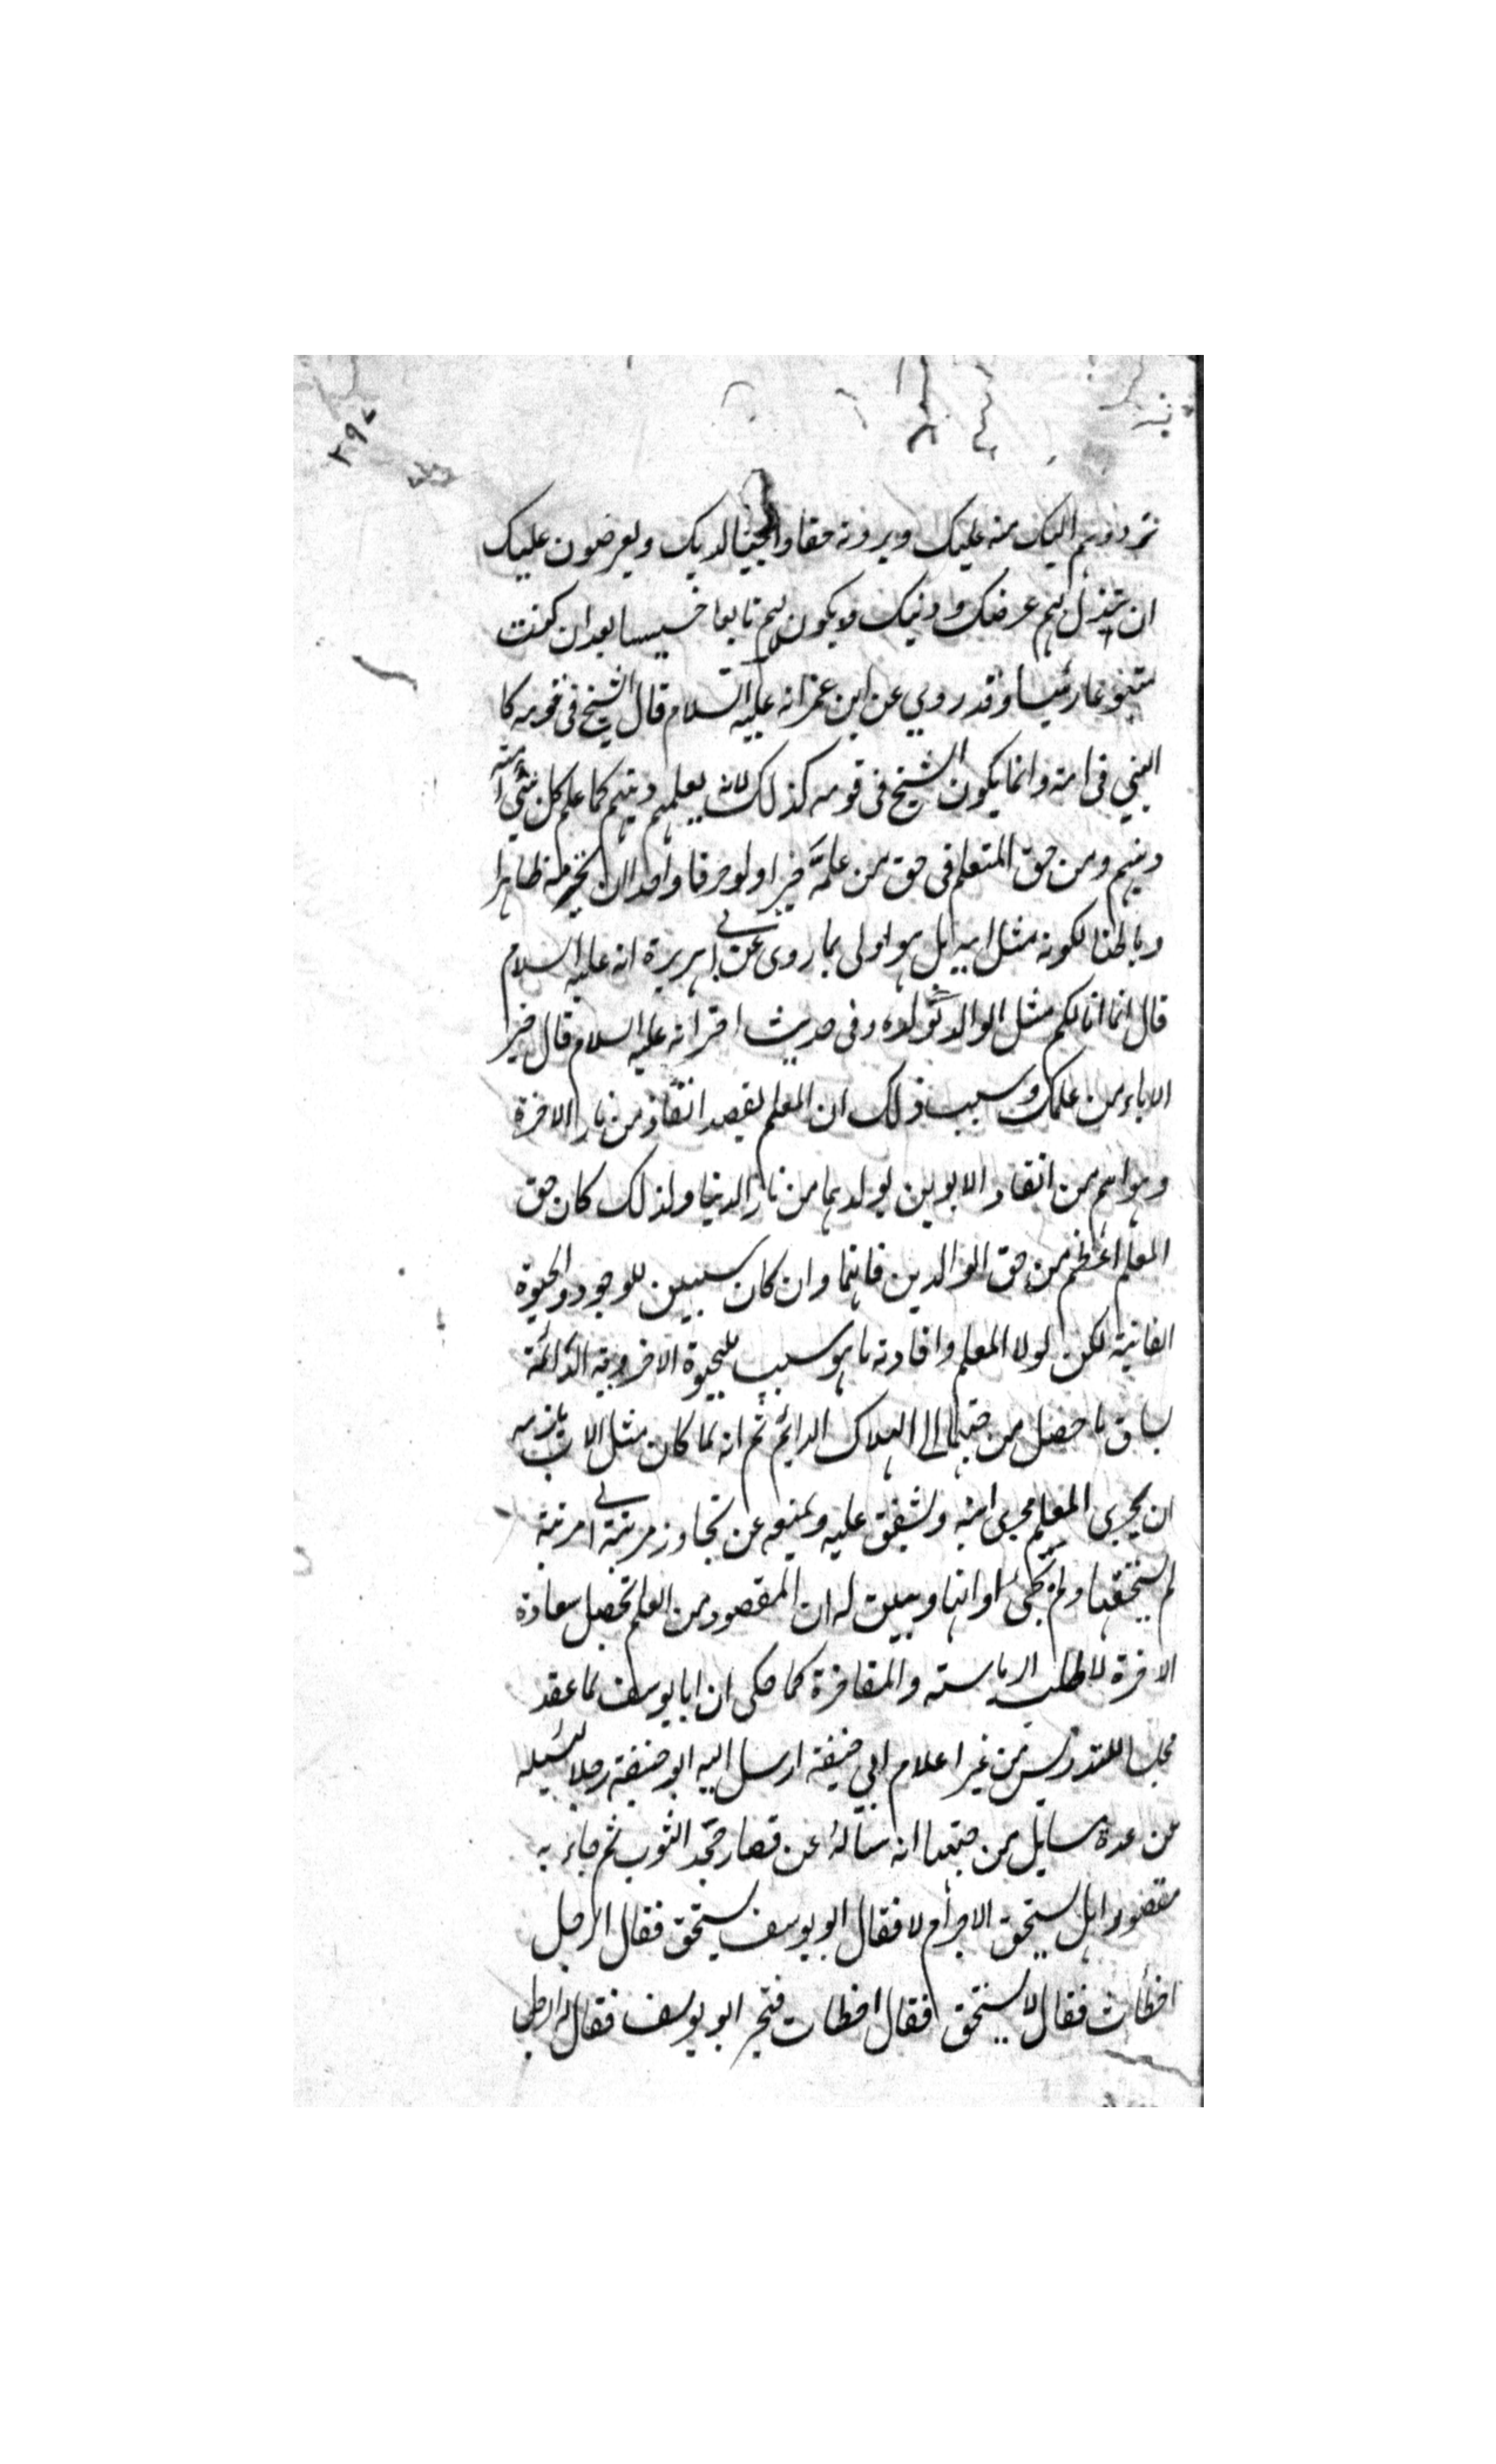 ۲۹۷
تردوهم اليك منه عليك ويرونه حقا واجبا لديك ويعرضون عليك
ان تبذل لهم عرضك ودنيك ولا يكون لهم تابعا خسيسا بعد ان كنت
متبوعا رئيسا وقد روي عن ابن عمر انه عليه السلام قال الشيخ في قومه كا
النبي في امته وانما يكون الشيخ في قومه كذلك لانه يعلمهم دينهم كما علم كل نبي امته
دينهم ومن حق المتعلم في حق من علمه خيرا ولو حرفا واحدا ان منه ظاهرا
وباطنا لكونه مثل ابيه بل هو اولى بما روى عن ابي هريرة انه عليه السلام
قال انما انا لكم مثل الوالد لولده وفي حديث اخر انه عليه السلام قال خير
الاباء من علمك وسبب ذلك ان المعلم يقصد انقاذ من نار الاخرة
وهو اهم من انقاد الابوين لولدهما من نار الدنيا ولذلك كان حق
المعلم اعظم من حق الوالدين فانهما وان كان سببين للوجود والحيوة
الفانية لكن لولا المعلم وافادته ما هو سبب للحيوة الاخروية الدائمة
لساق ما حصل من جهتهما الى الهلاك الدايم ثم انه لما كان مثل الاب يلزمه
ان يجري المتعلم مجرى ابنه ويشفق عليه ويمنعه عن تجاوز مرتبة الى مرتبة
لم يستحقها ولم يجئ اوانها ويبين له ان المقصود من العلم تحصيل سعادة
الاخرة لا طلب الرياسة والمفاخرة كما حكى ان ابا يوسف لما عقد
مجلسا للتدريس من غير اعلام ابي حنيفة ارسل اليه ابو حنيفة رجلا ليسئله
عن عدة مسايل من جملتها انه سأله عن قصار جحد الثوب ثم جاء به
مقصورا هل يستحق الاجر ام لا فقال ابو يوسف يستحق فقال الرجل
اخطأت فقال لا يستحق فقال اخطات فتحير ابو يوسف فقال له الرجل